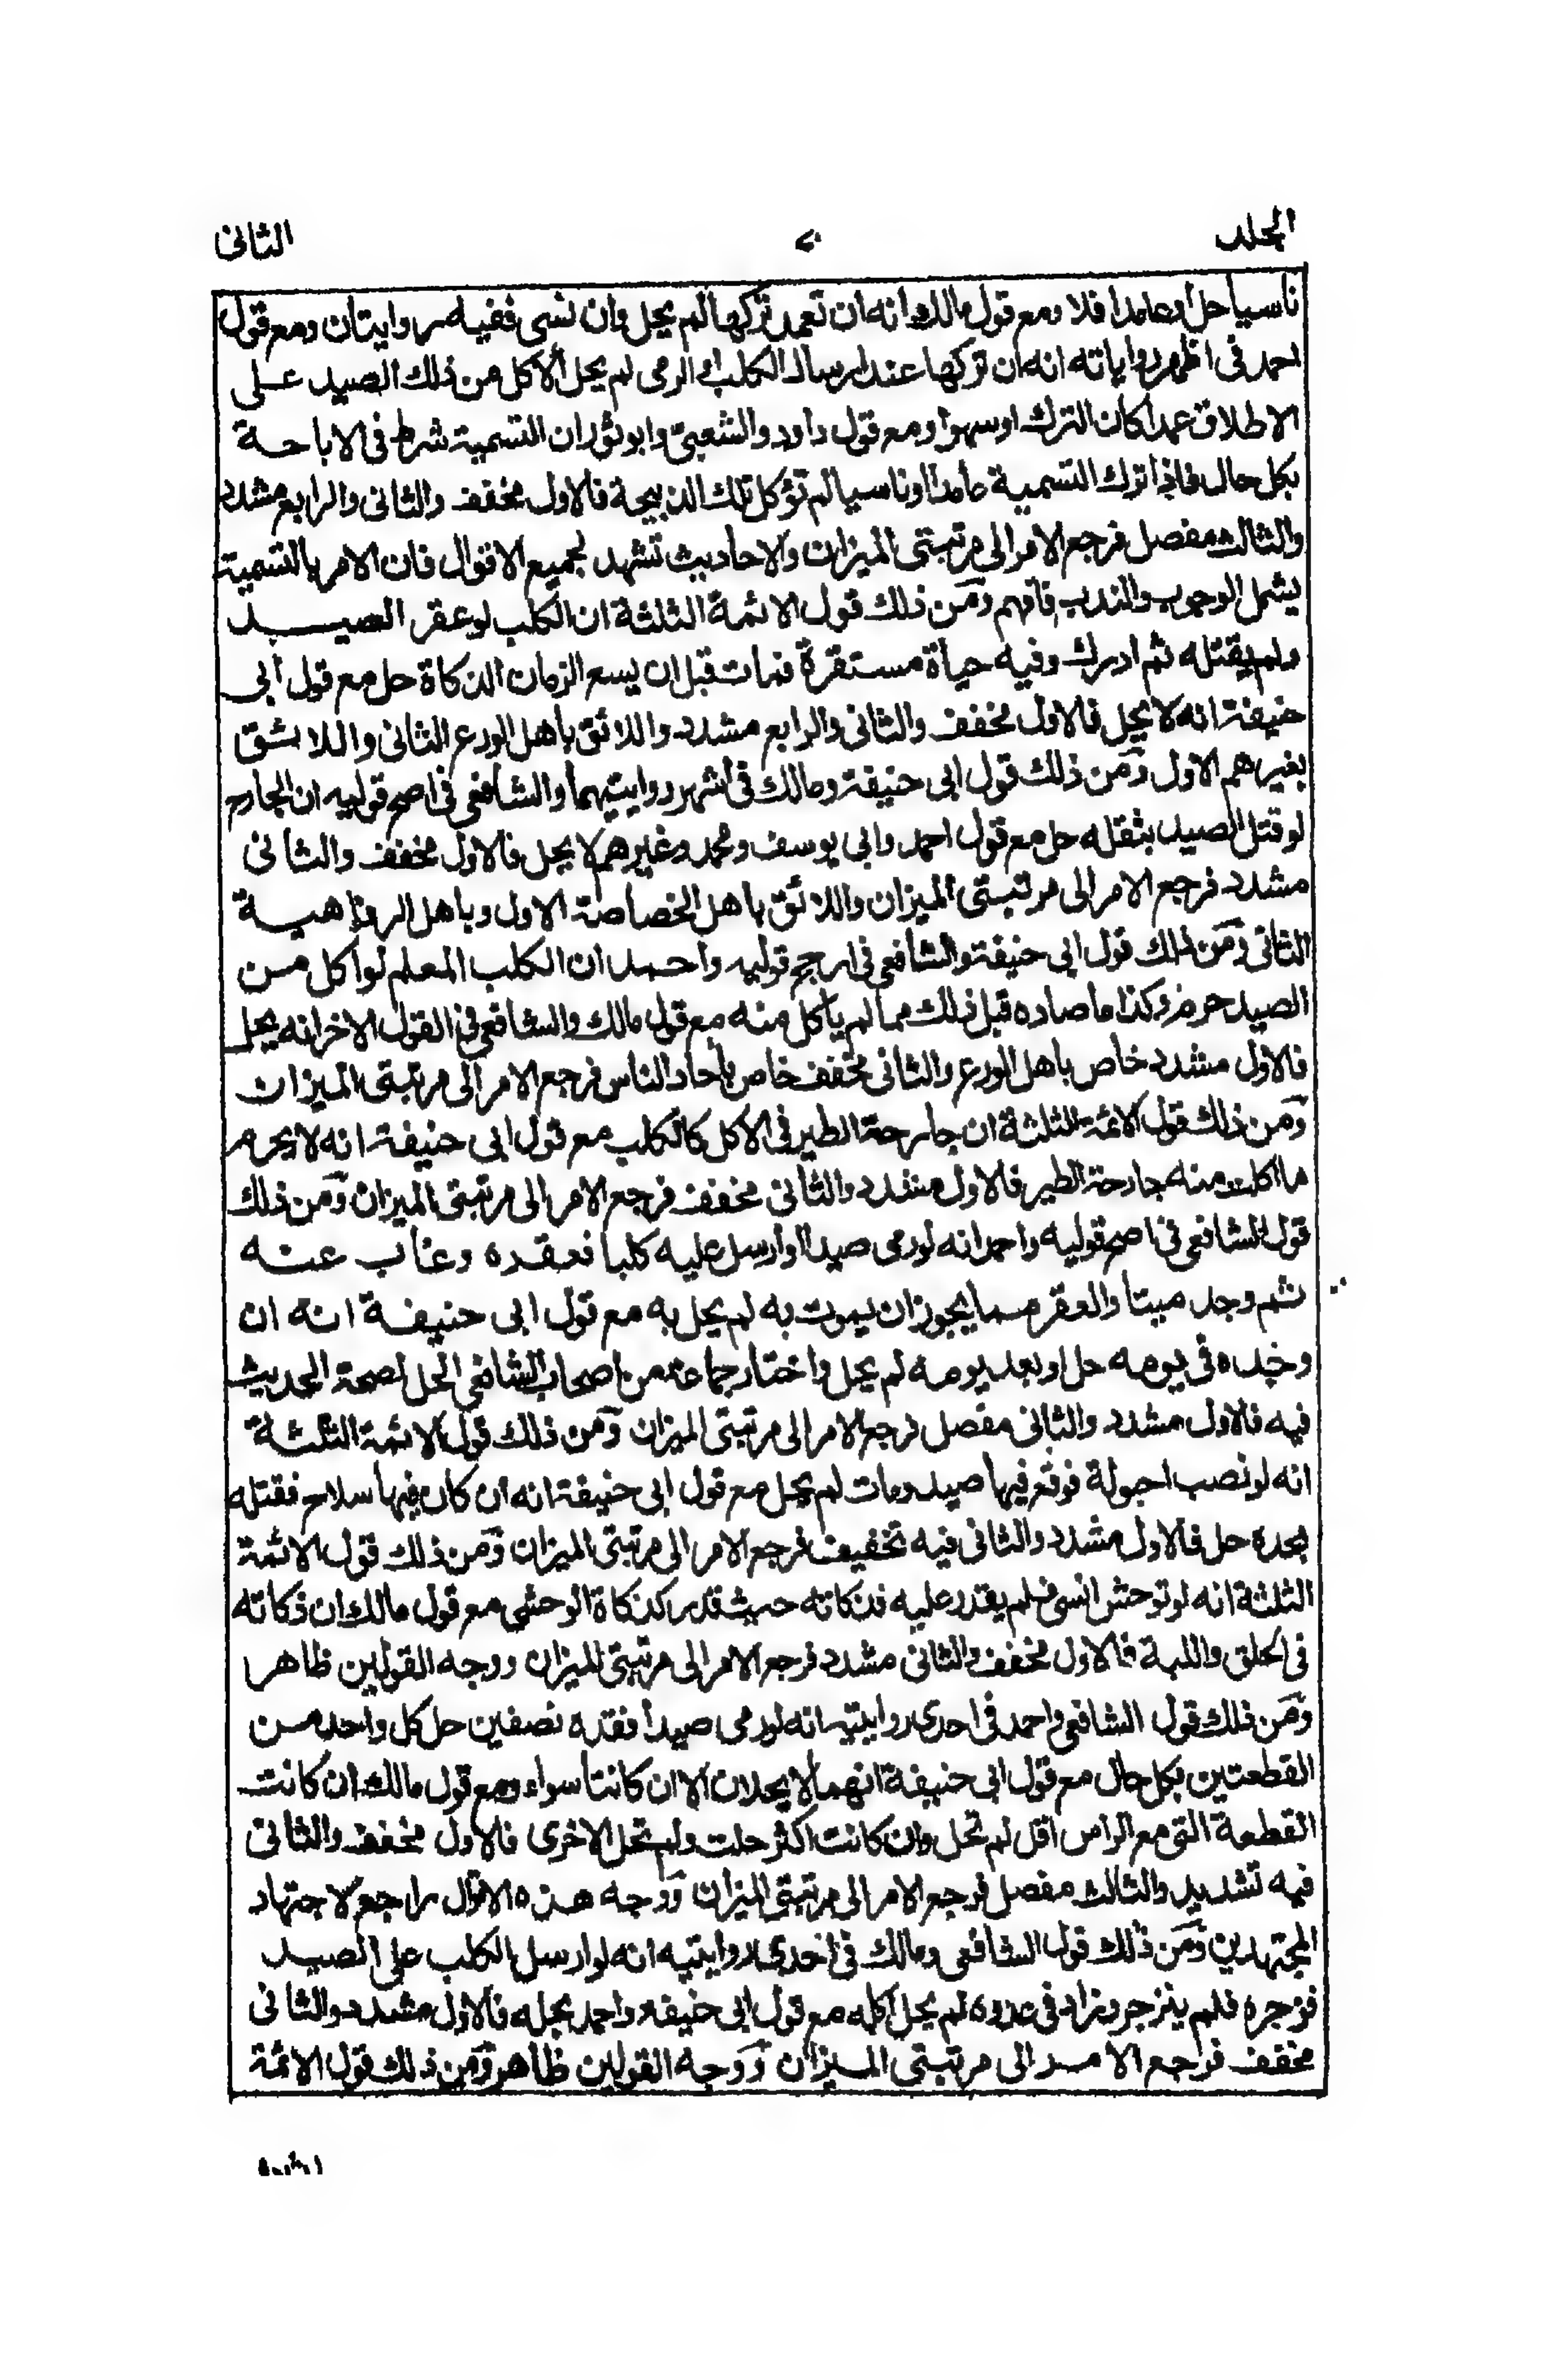 المجلد
الثانى
ناسيا حل وعامدا فلا ومع قول مالك انه ان تعمد تركها لم يحل وان نسى ففيه روايتان ومع قول
احمد فى اظهر رواياته انه ان تركها عند ارسال الكلب او الرمى لم يحل الاكل من ذلك الصيد على
الاطلاق عمدا كان الترك او سهوا ومع قول داود والشعبى وابو ثور ان التسمية شرط فى الاباحة
بكل حال فاذا ترك التسمية عامدا او ناسيا لم تؤكل تلك الذبيحة فالاول مخفف والثانى والرابع مشدد
والثالث مفصل فرجع الامر الى مرتبتى الميزان والاحاديث تشهد لجميع الاقوال فان الامر بالتسمية
يشمل الوجوب والندب فافهم ومن ذلك قول الائمة الثلثة ان الكلب لو عقر الصيد
ولم يقتله ثم ادرك وفيه حياة مستقرة فمات قبل ان يسع الزمان الذكاة حل مع قول ابى
حنيفة انه لا يحل فالاول مخفف والثانى والرابع مشدد واللائق باهل الورع الثانى واللائق
بغيرهم الاول ومن ذلك قول ابى حنيفة ومالك فى اشهر روايتيهما والشافعى فى اصح قوليه ان الجارح
لو قتل الصيد بثقله حل مع قول احمد وابى يوسف ومحمد وغيرهم لا يحل فالاول مخفف والثانى
مشدد فرجع الامر الى مرتبتى الميزان واللائق باهل الخصاصة الاول وباهل الرفاهية
الثانى ومن ذلك قول ابى حنيفة والشافعى فى ارجح قوليه واحمد ان الكلب المعلم لو اكل من
الصيد حرم وكذا ما صاده قبل ذلك مما لم ياكل منه مع قول مالك والشافعى فى القول الاخر انه يحل
فالاول مشدد خاص باهل الورع والثانى مخفف خاص باحاد الناس فرجع الامر الى مرتبتى الميزان
ومن ذلك قول الائمة الثلثة ان جارحة الطير فى الاكل كالكلب مع قول ابى حنيفة انه لا يحرم
ما اكلت منه جارحة الطير فالاول مشدد والثانى مخفف فرجع الامر الى مرتبتى الميزان ومن ذلك
قول الشافعى فى اصح قوليه واحمد انه لو رمى صيدا او ارسل عليه كلبا فعقده وغاب عنه
ثم وجد ميتا والعقر مما يجوز ان يموت به لم يحل به مع قول ابى حنيفة انه ان
وجده فى يومه حل او بعد يومه لم يحل واختار جماعة من اصحاب الشافعى الحل لصحة الحديث
فيه فالاول مشدد والثانى مفصل فرجع الامر الى مرتبتى الميزان ومن ذلك قول الائمة الثلثة
انه لو نصب احبولة فوقع فيها صيد ومات لم يحل مع قول ابى حنيفة انه ان كان فيها سلاح فقتله
بحده حل فالاول مشدد والثانى فيه تخفيف فرجع الامر الى مرتبتى الميزان ومن ذلك قول الائمة
الثلثة انه لو توحش انسى فلم يقدر عليه فذكاته حيث قدر كذكاة الوحشى مع قول مالك ان ذكاته
فى الحلق واللبة فالاول مخفف والثانى مشدد فرجع الامر الى مرتبتى الميزان ووجه القولين ظاهر
ومن ذلك قول الشافعى واحمد فى احدى روايتيه انه لو رمى صيدا فقده نصفين حل كل واحد من
القطعتين بكل حال مع قول ابى حنيفة انهما لا يحلان الا ان كانتا سواء ومع قول مالك ان كانت
القطعة التى مع الراس اقل لم تحل وان كانت اكثر حلت ولم تحل الاخرى فالاول مخفف والثانى
فيه تشديد والثالث مفصل فرجع الامر الى مرتبتى الميزان ووجه هذه الاقوال راجع لاجتهاد
المجتهدين ومن ذلك قول الشافعى ومالك فى احدى روايتيه انه لو ارسل الكلب على الصيد
فزجره فلم ينزجر وزاد فى عدوه لم يحل اكله مع قول ابى حنيفة واحمد بحله فالاول مشدد والثانى
مخفف فرجع الامر الى مرتبتى الميزان ووجه القولين ظاهر ومن ذلك قول الائمة